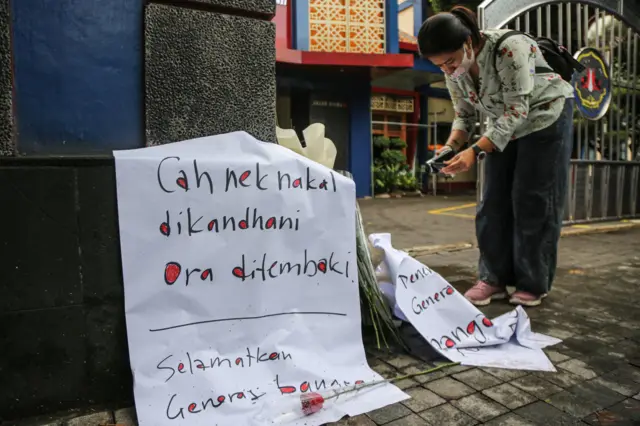 Cah nek nakal
dikandhani
Ora ditembaki
Selamatkan
Generasi bangsa
Generasi
bangsa